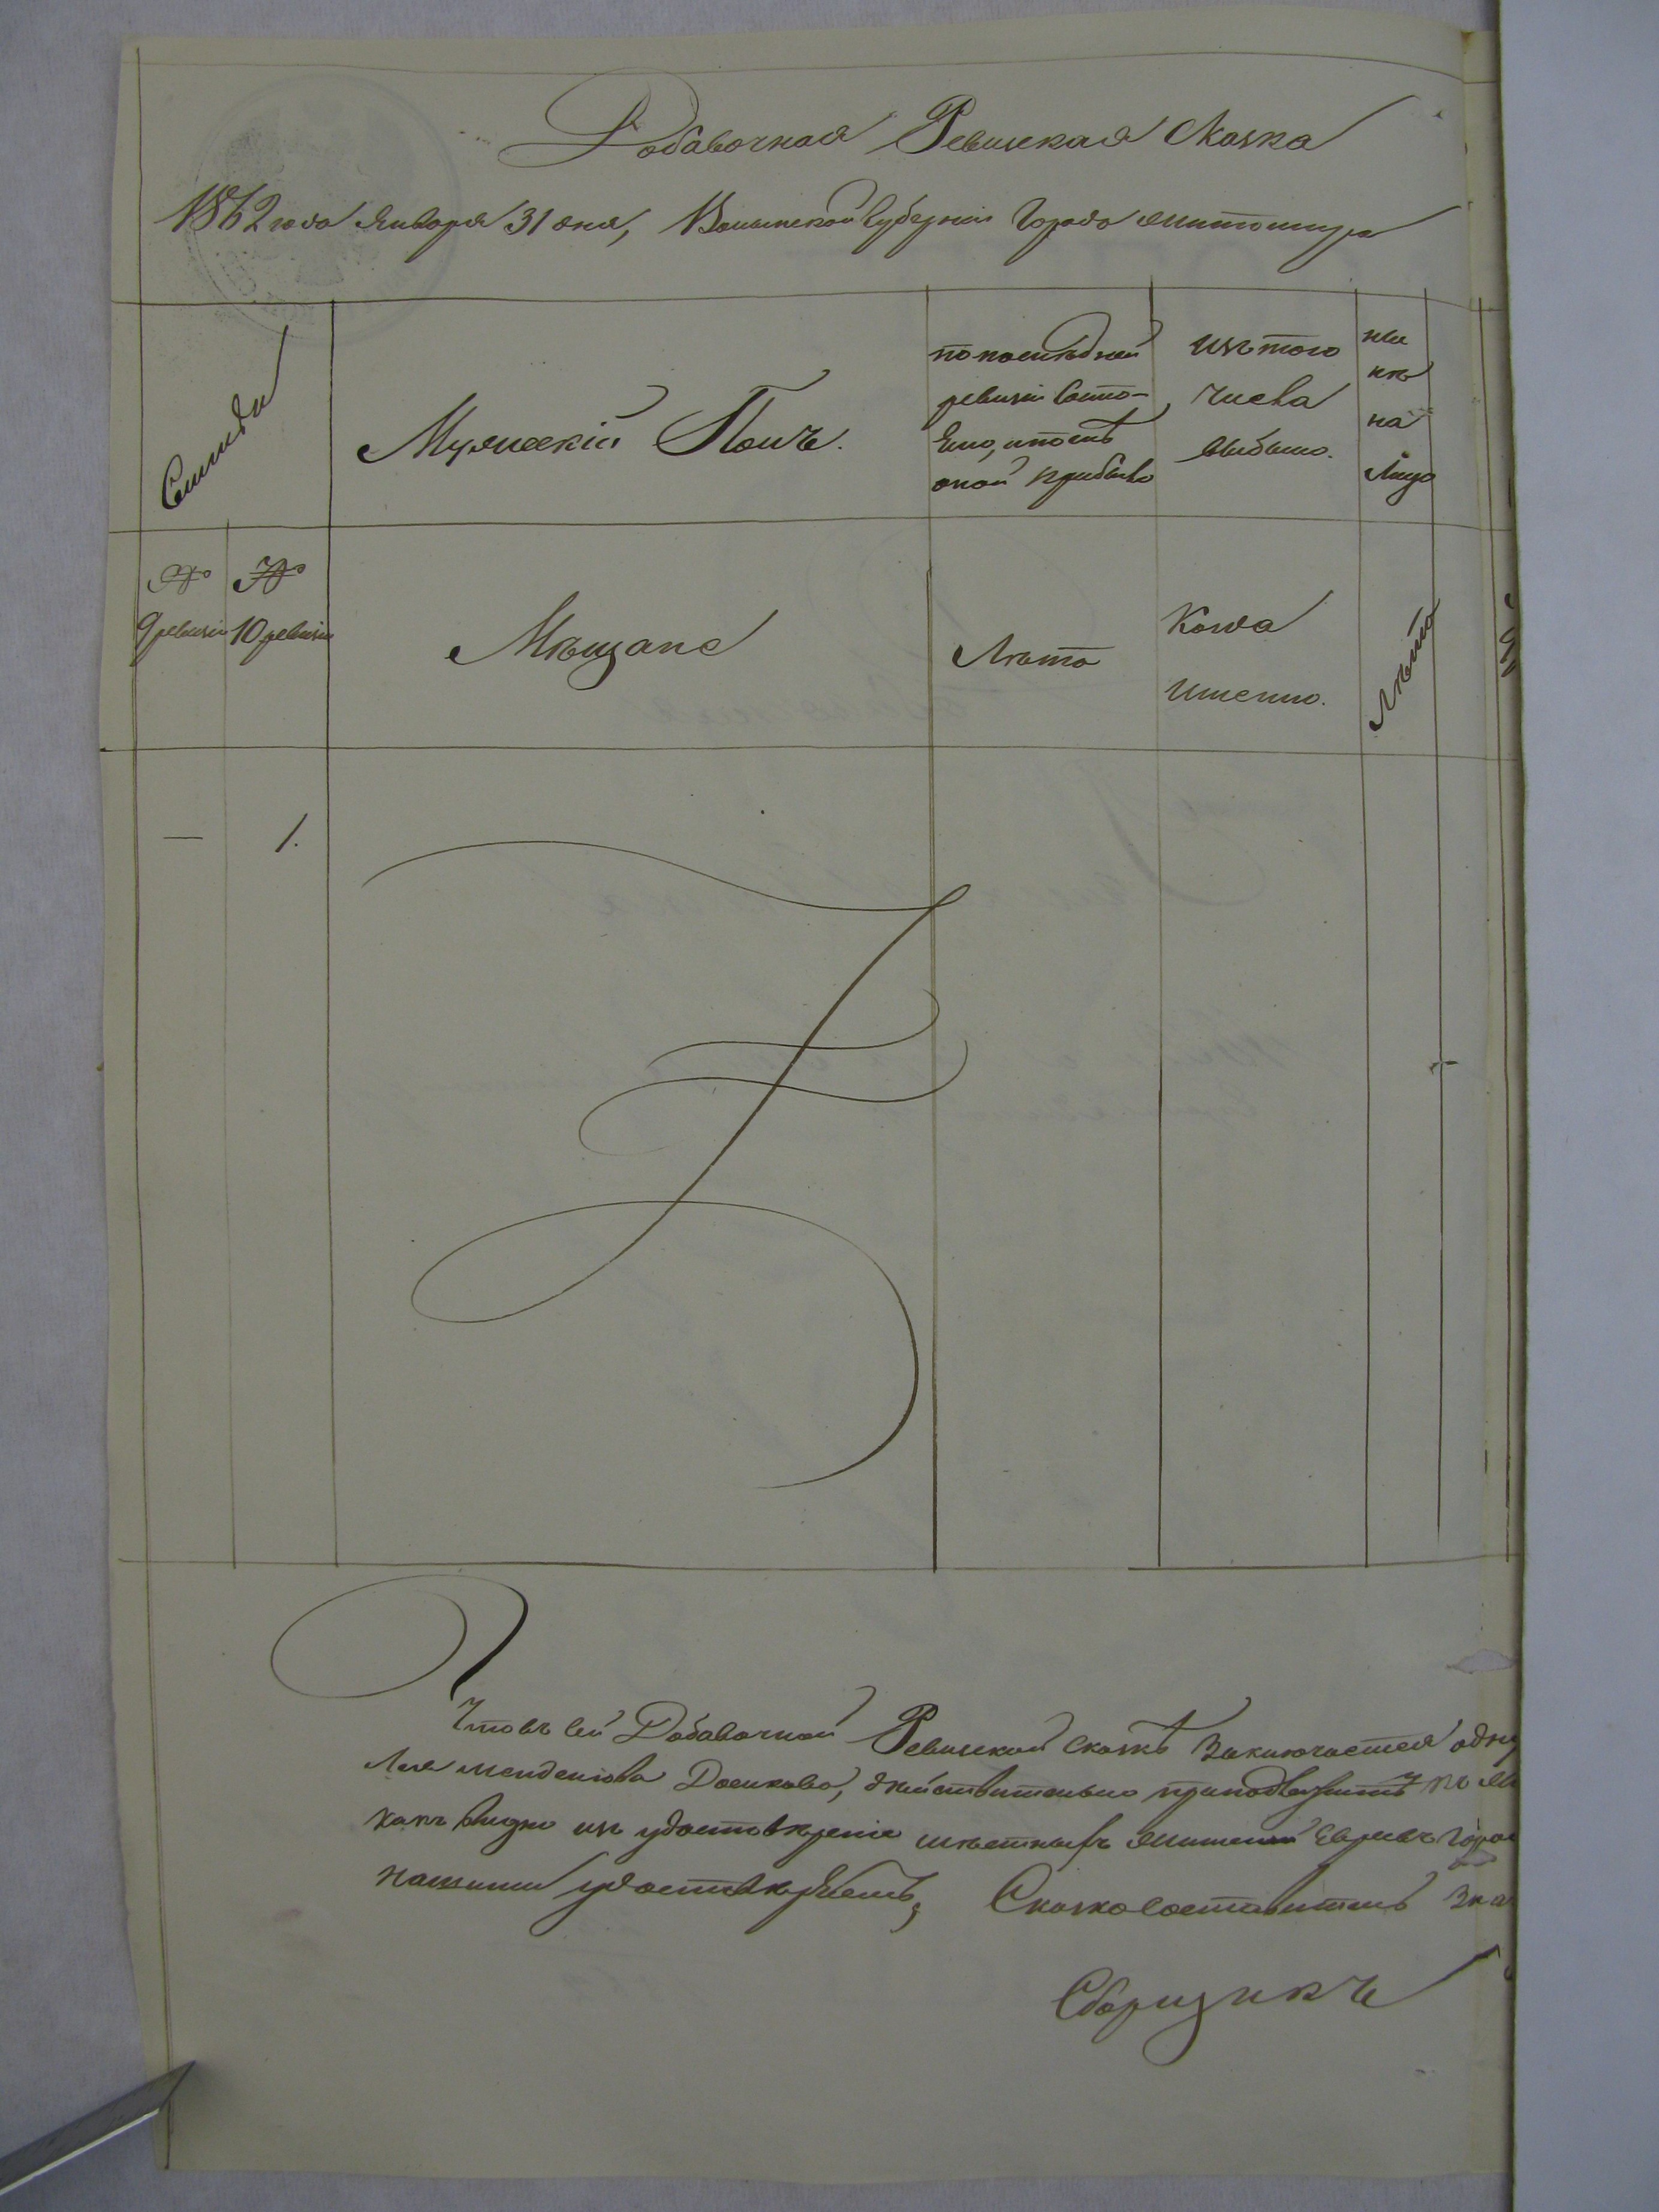 Добавочная Ревизская Сказка
1862 года Января 31 дня, Волынской Губерніи Города Житомира
Семьи
Мужескій Полъ.
по последней
ревизіи состо-
яло, и послѣ
оной прибыло
Изъ того
числа
выбыло.
ны
нѣ
на
лицо
№
9 ревизіи
№
10 ревизіи
Мѣщане
Лѣта
Когда
именно.
Лѣта
—
1.
Что въ сей Добавочной Ревизской сказкѣ Заключается одна
Лея Менделева действительно принадлежитъ къ
какъ видно изъ удостовѣренія мѣстныхъ Евреевъ Горо
нашими удостовѣряемъ, Сказкосоставитель
Сборщикъ